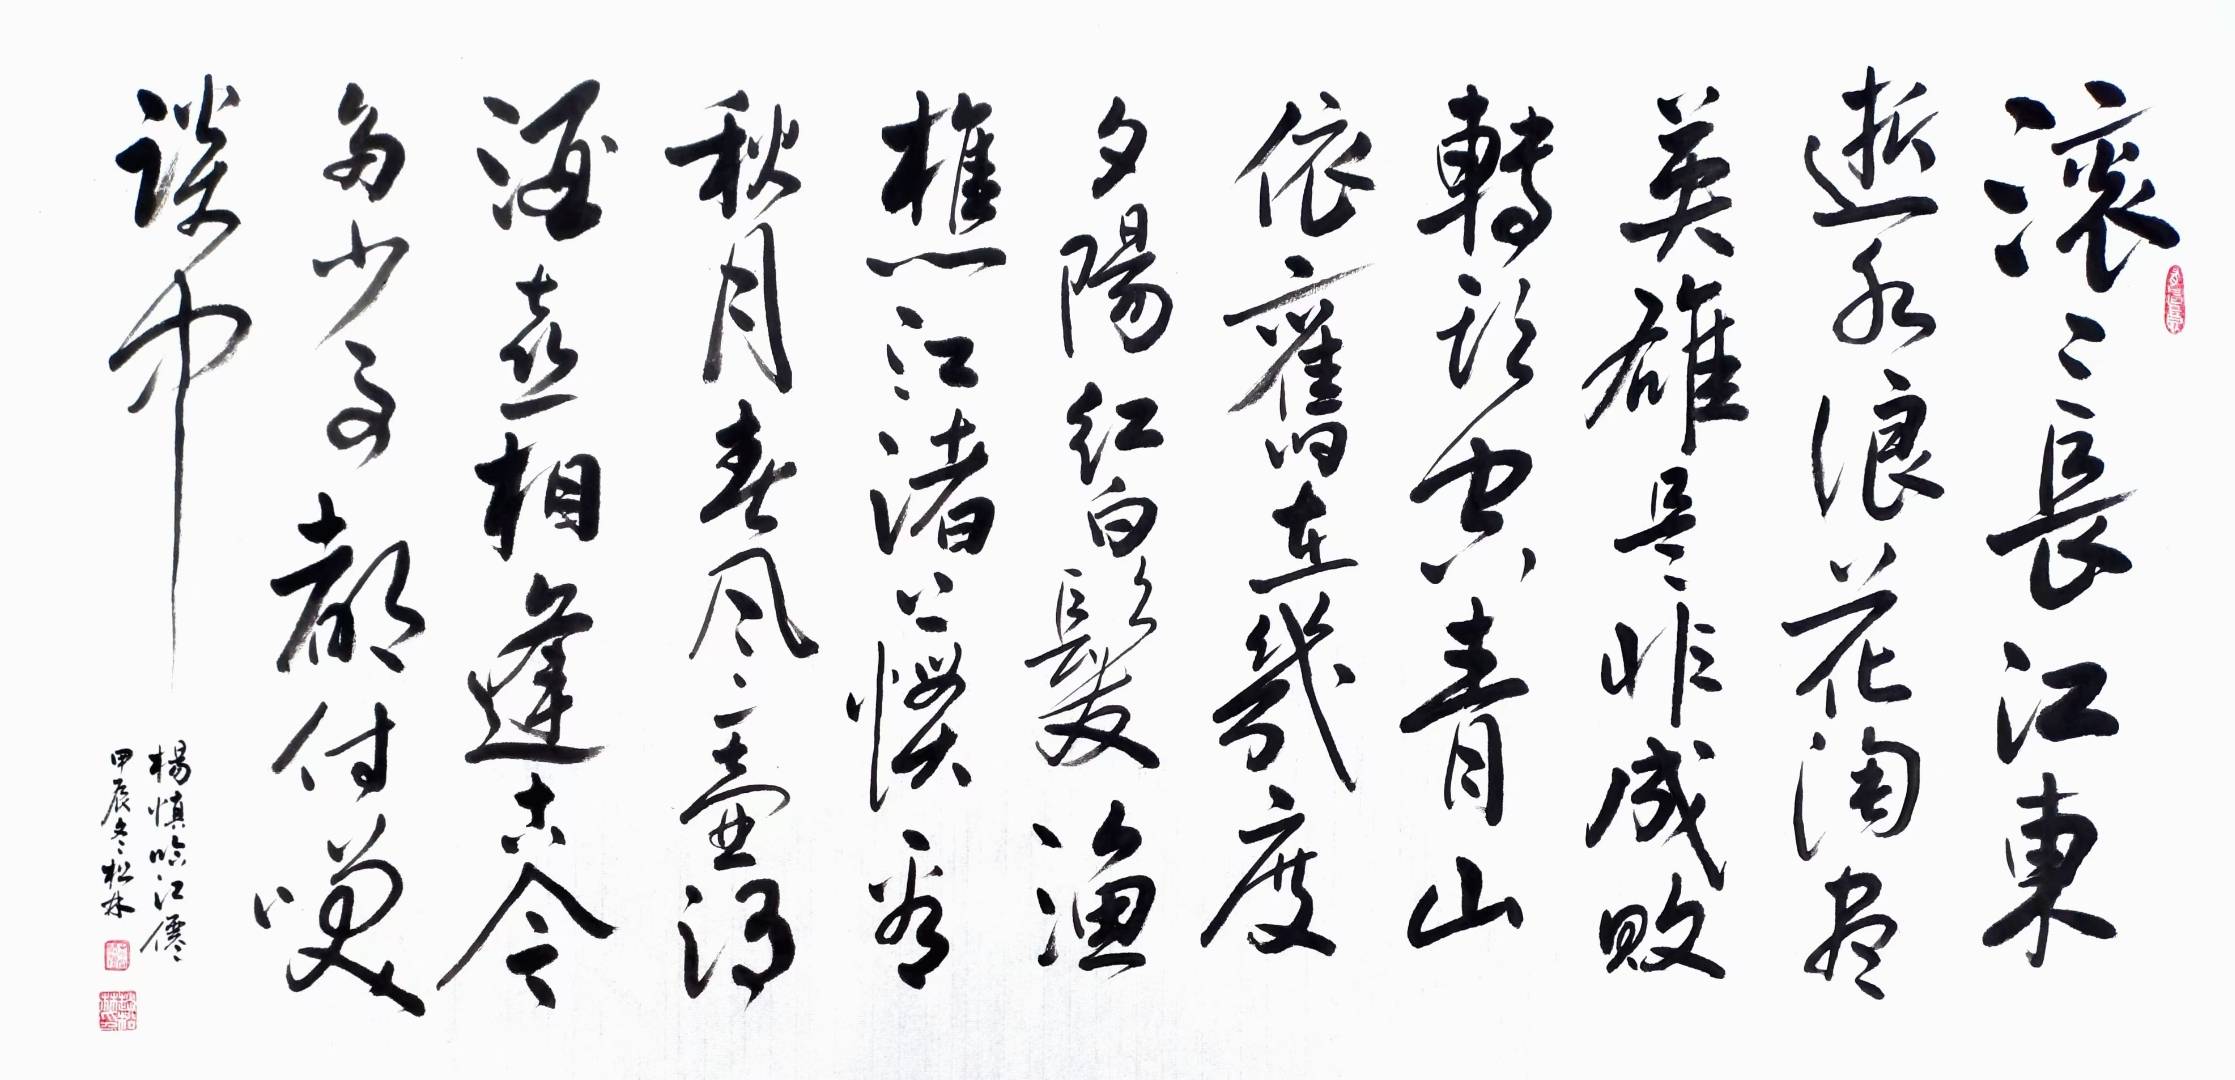 滚々長江東
逝水浪花淘尽
英雄是非成敗
轉頭空青山
依舊在幾度
夕陽红白髮渔
樵江渚上慣看
秋月春风一壺濁
酒喜相逢古今
多少事都付笑
談中
楊慎临江僊
甲辰冬松林